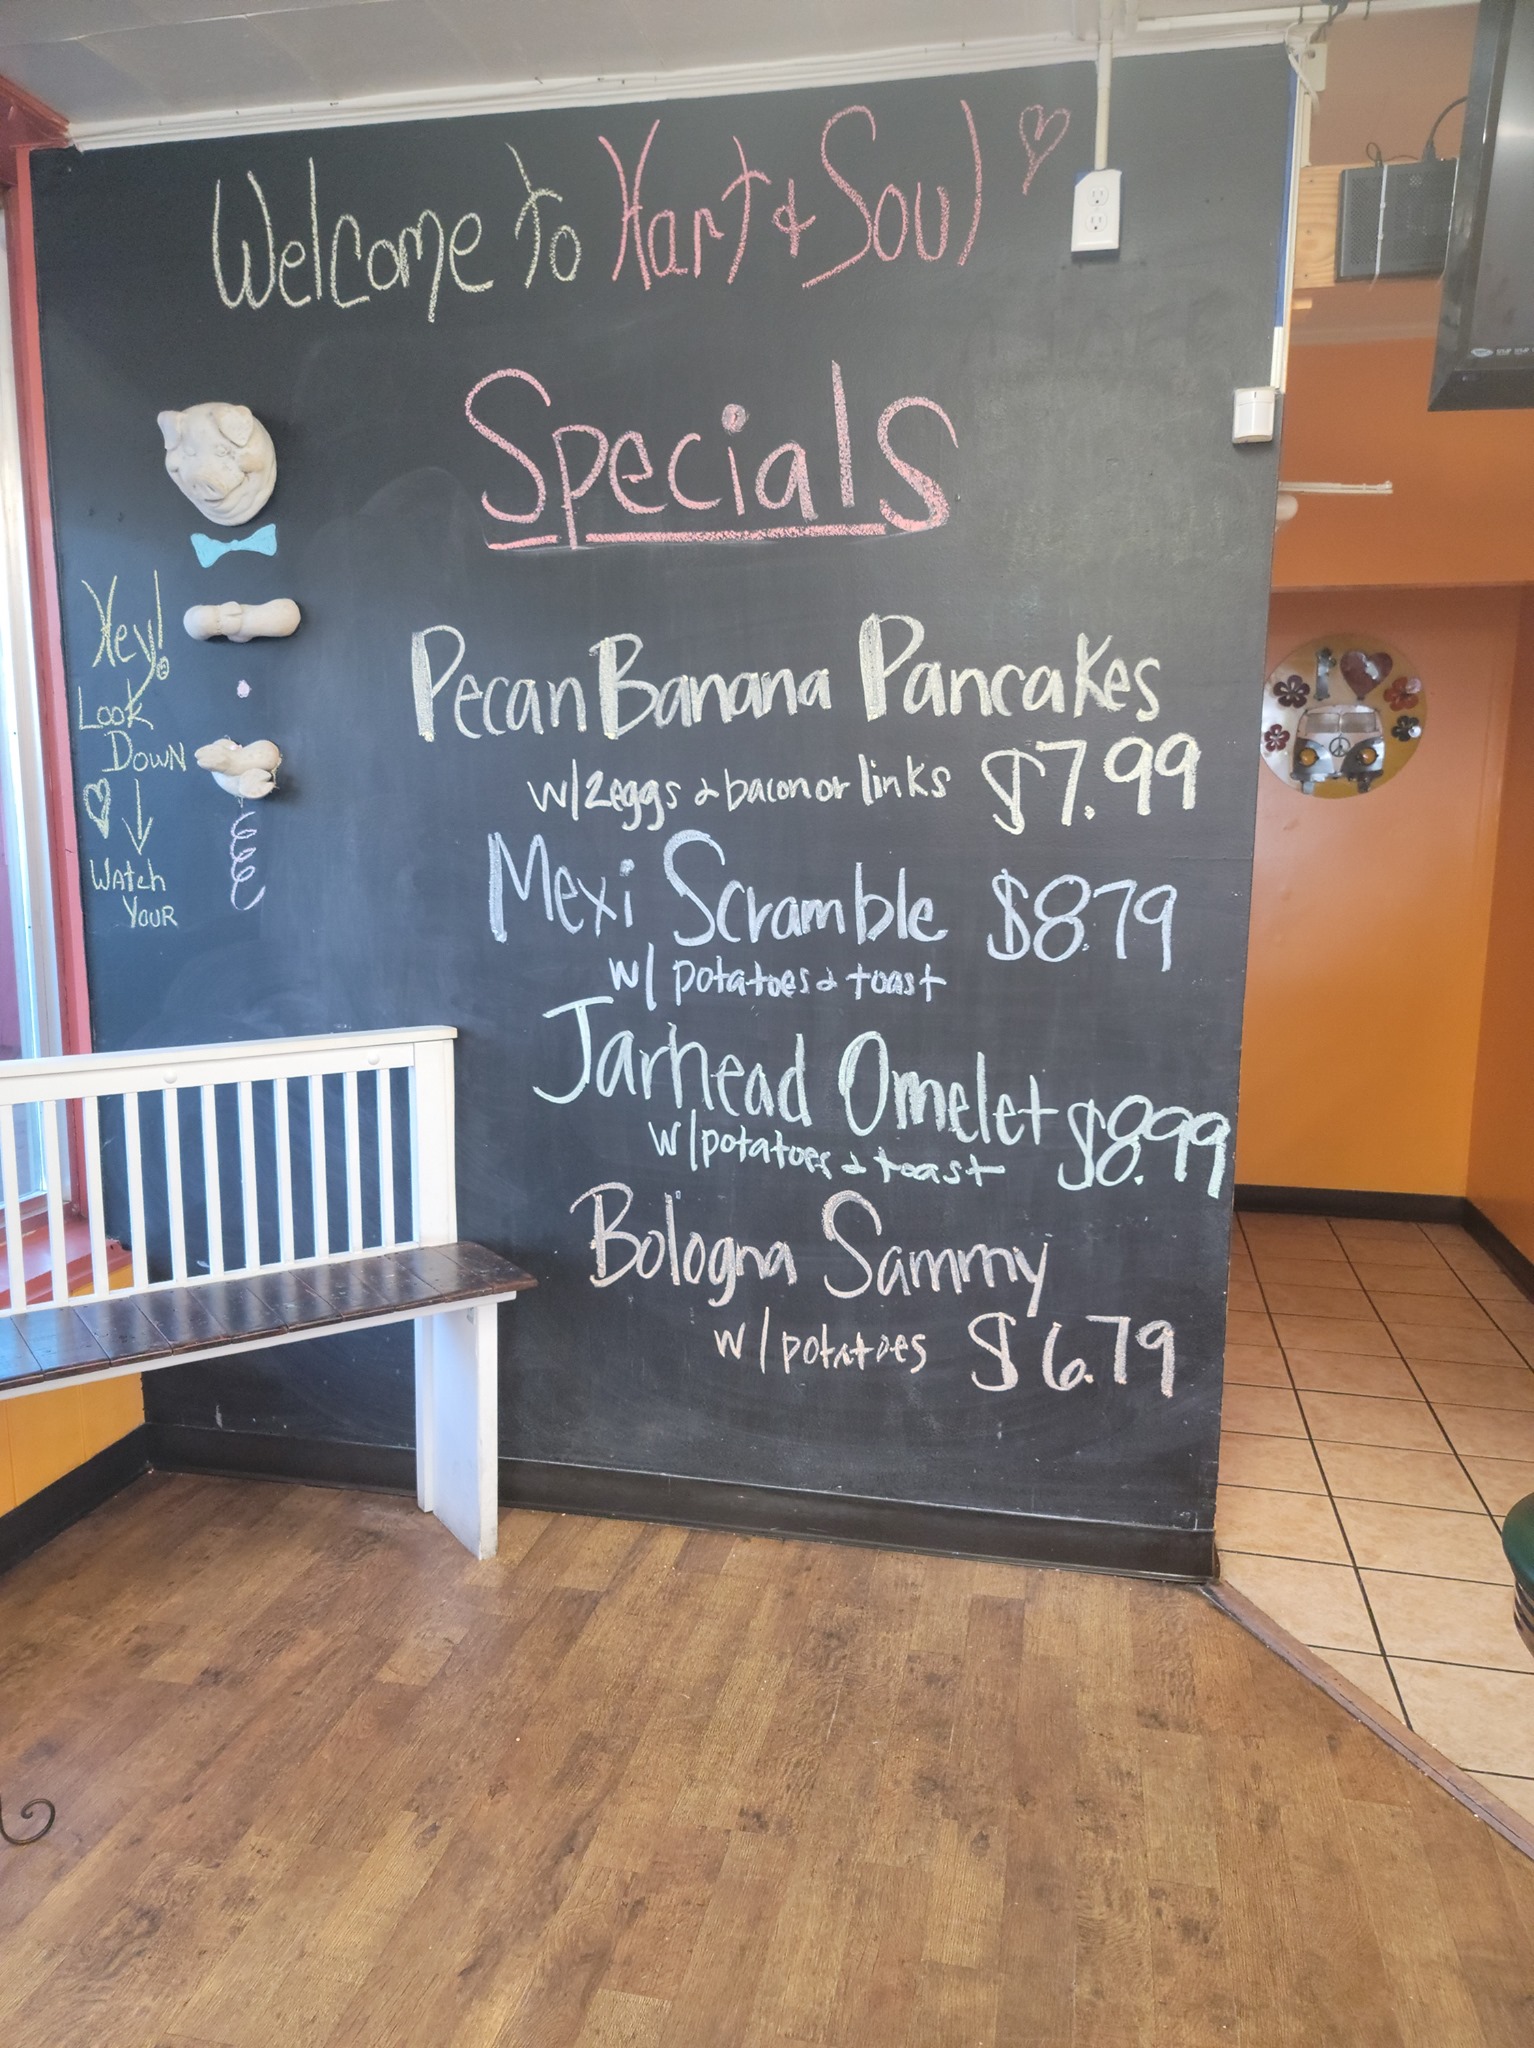 Welcome To Hart & Soul
Specials
Hey!
Look
Down
Watch
Your
Pecan Banana Pancakes
w/2eggs & bacon or links $7.99
Mexi Scramble $8.79
w/ potatoes & toast
Jarhead Omelet $8.99
w/potatoes & toast
Bologna Sammy
w/potatoes $6.79
I